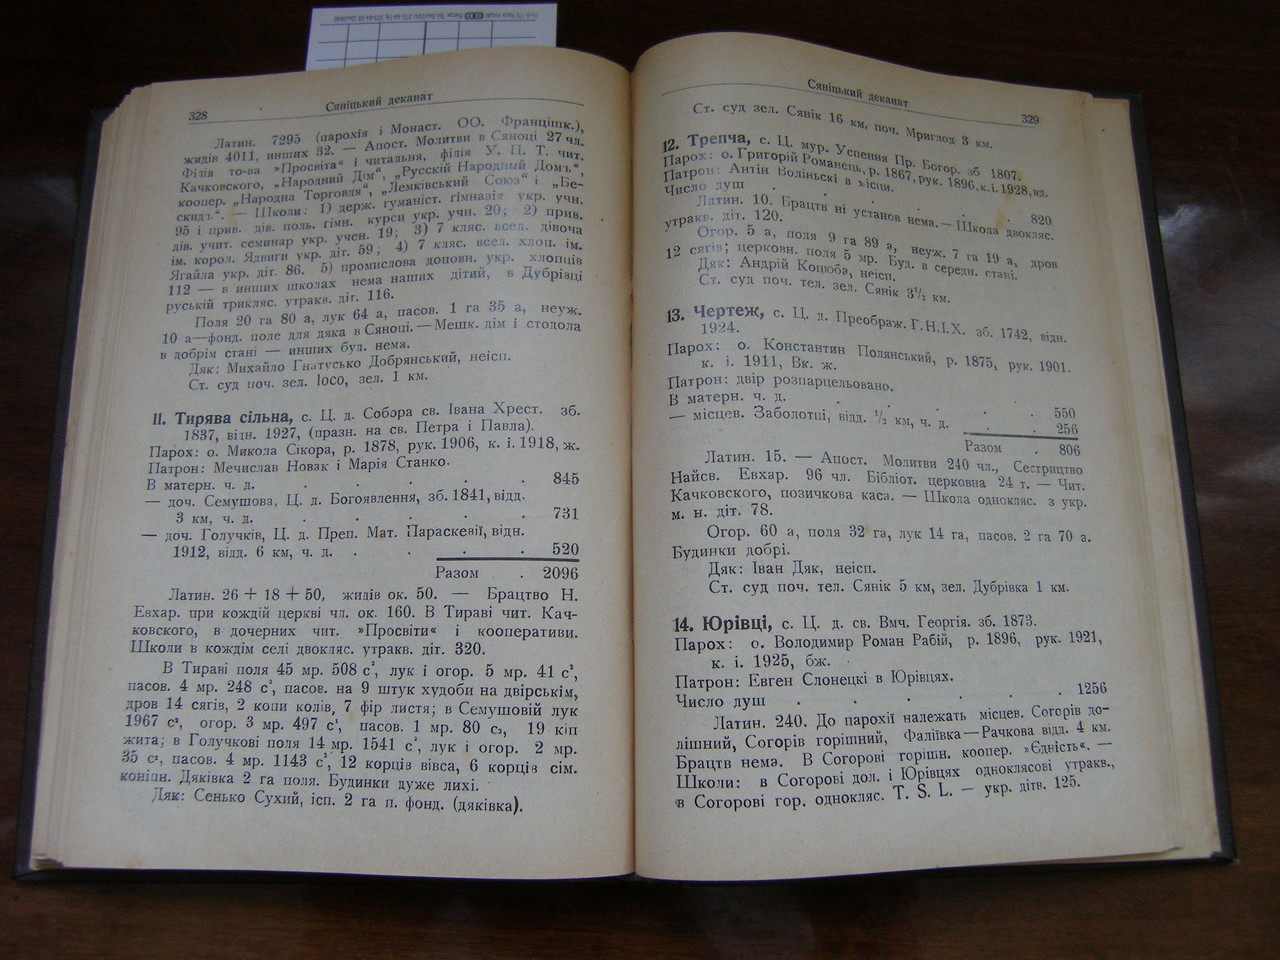 328
Сяніцький деканат
Латин. 7295 (парохія і Монаст. ОО. Францішк.),
жидів 4011, инших 32. — Апост. Молитви в Сяноці 27 чл.
Філія то-ва »Просвіта« і читальня, філія У. П. Т. чит.
Качковского, „Народний Дім", „Русскій Народный Домъ",
коопер. „Народна Торговля", „Лемківський Союз" і „Бе-
скидъ". — Школи: 1) держ. гуманіст. гімназія укр. учн.
95 і прив. дів. поль. гімн. курси укр. учн. 20; 2) прив.
дів. учит. семинар укр. учен. 19; 3) 7 кляс. всел. дівоча
ім. корол. Ядвиги укр. діт. 59; 4) 7 кляс. всел. хлоп. ім.
Ягайла укр. діт. 86. 5) промислова доповн. укр. хлопців
112 — в инших школах нема наших дітий, в Дубрівці
руській трикляс. утракв. діт. 116.
Поля 20 га 80 а, лук 64 а, пасов. 1 га 35 а, неуж.
10 а—фонд. поле для дяка в Сяноці. — Мешк. дім і стодола
в добрім стані — инших буд. нема.
Дяк: Михайло Гнатусько Добрянський, неісп.
Ст. суд поч. зел. loco, зел. 1 км.
11. Тирява сільна, с. Ц. д. Собора св. Івана Хрест. зб.
1837, відн. 1927, (празн. на св. Петра і Павла).
Парох: о. Микола Сікора, р. 1878, рук. 1906, к. і. 1918, ж.
Патрон: Мечислав Новак і Марія Станко.
В матерн. ч. д. . . . . . 845
— доч. Семушова, Ц. д. Богоявлення, зб. 1841, відд.
3 км, ч. д. . . . . . 731
— доч. Голучків, Ц. д. Преп. Мат. Параскевії, відн.
1912, відд. 6 км, ч. д. . . . . 520
Разом . 2096
Латин. 26 + 18 + 50, жидів ок. 50. — Брацтво Н.
Евхар. при кождій церкві чл. ок. 160. В Тираві чит. Кач-
ковського, в дочерних чит. »Просвіти« і кооперативи.
Школи в кождім селі двокляс. утракв. діт. 320.
В Тираві поля 45 мр. 508 с², лук і огор. 5 мр. 41 с²,
пасов. 4 мр. 248 с², пасов. на 9 штук худоби на двірськім,
дров 14 сягів, 2 копи колів, 7 фір листя; в Семушовій лук
1967 с², огор. 3 мр. 497 с², пасов. 1 мр. 80 с², 19 кіп
жита; в Голучкові поля 14 мр. 1541 с², лук і огор. 2 мр.
35 с², пасов. 4 мр. 1143 с², 12 корців вівса, 6 корців сім.
коніпн. Дяківка 2 га поля. Будинки дуже лихі.
Дяк: Сенько Сухий, ісп. 2 га п. фонд. (дяківка).
Сяніцький деканат
329
Ст. суд зел. Сянік 16 км, поч. Мриглод 3 км.
12. Трепча, с. Ц. мур. Успення Пр. Богор. зб 1807.
Парох: о. Григорій Романець, р. 1867, рук. 1896, к. і. 1928, вд.
Патрон: Антін Воліньскі в місци.
Число душ . . . . . 820
Латин. 10. Брацтв ні установ нема. — Школа двокляс.
утракв. діт. 120.
Огор. 5 а, поля 9 га 89 а, неуж. 7 га 19 а, дров
12 сягів; церковн. поля 5 мр. Буд. в середн. стані.
Дяк: Андрій Коцюба, неісп.
Ст. суд поч. тел. зел. Сянік 3½ км.
13. Чертеж, с. Ц. д. Преображ. Г.Н.І.Х. зб. 1742, відн.
1924.
Парох: о. Константин Полянський, р. 1875, рук. 1901.
к. і. 1911, Вк. ж.
Патрон: двір розпарцельовано.
В матерн. ч. д. . . . . . 550
— місцев. Заболотці, відд. ½ км, ч. д. . . . 256
Разом . 806
Латин. 15. — Апост. Молитви 240 чл., Сестрицтво
Найсв. Евхар. 96 чл. Бібліот. церковна 24 т. — Чит.
Качковского, позичкова каса. — Школа однокляс. з укр.
м. н. діт. 78.
Огор. 60 а, поля 32 га, лук 14 га, пасов. 2 га 70 а.
Будинки добрі.
Дяк: Іван Дяк, неісп.
Ст. суд поч. тел. Сянік 5 км, зел. Дубрівка 1 км.
14. Юрівці, с. Ц. д. св. Вмч. Георгія. зб. 1873.
Парох: о. Володимир Роман Рабій, р. 1896, рук. 1921,
к. і. 1925, бж.
Патрон: Евген Слонецкі в Юрівцях.
Число душ . . . . . 1256
Латин. 240. До парохії належать місцев. Согорів до-
лішний, Согорів горішний, Фаліївка—Рачкова відд. 4 км.
Брацтв нема. В Согорові горішн. коопер. »Єдність«. —
Школи: в Согорові дол. і Юрівцях одноклясові утракв.,
в Согорові гор. однокляс. T. S. L. — укр. дітв. 125.